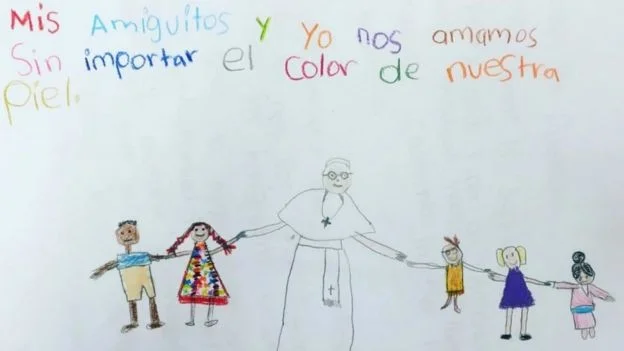 Mis Amiguitos y yo nos amamos
Sin importar el Color de nuestra
Piel.